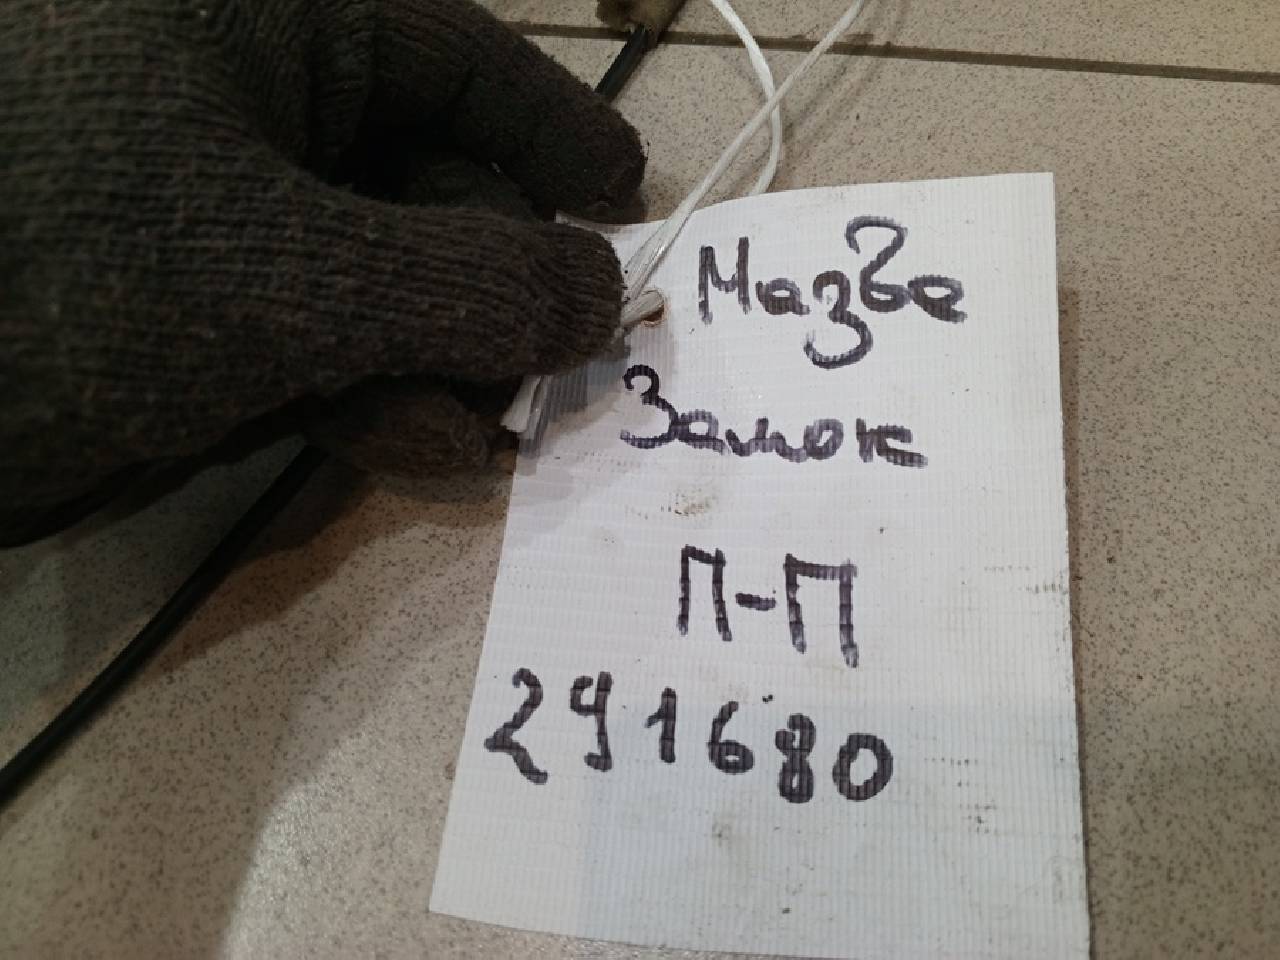 Мазда 6е
Замок
П-П
291680